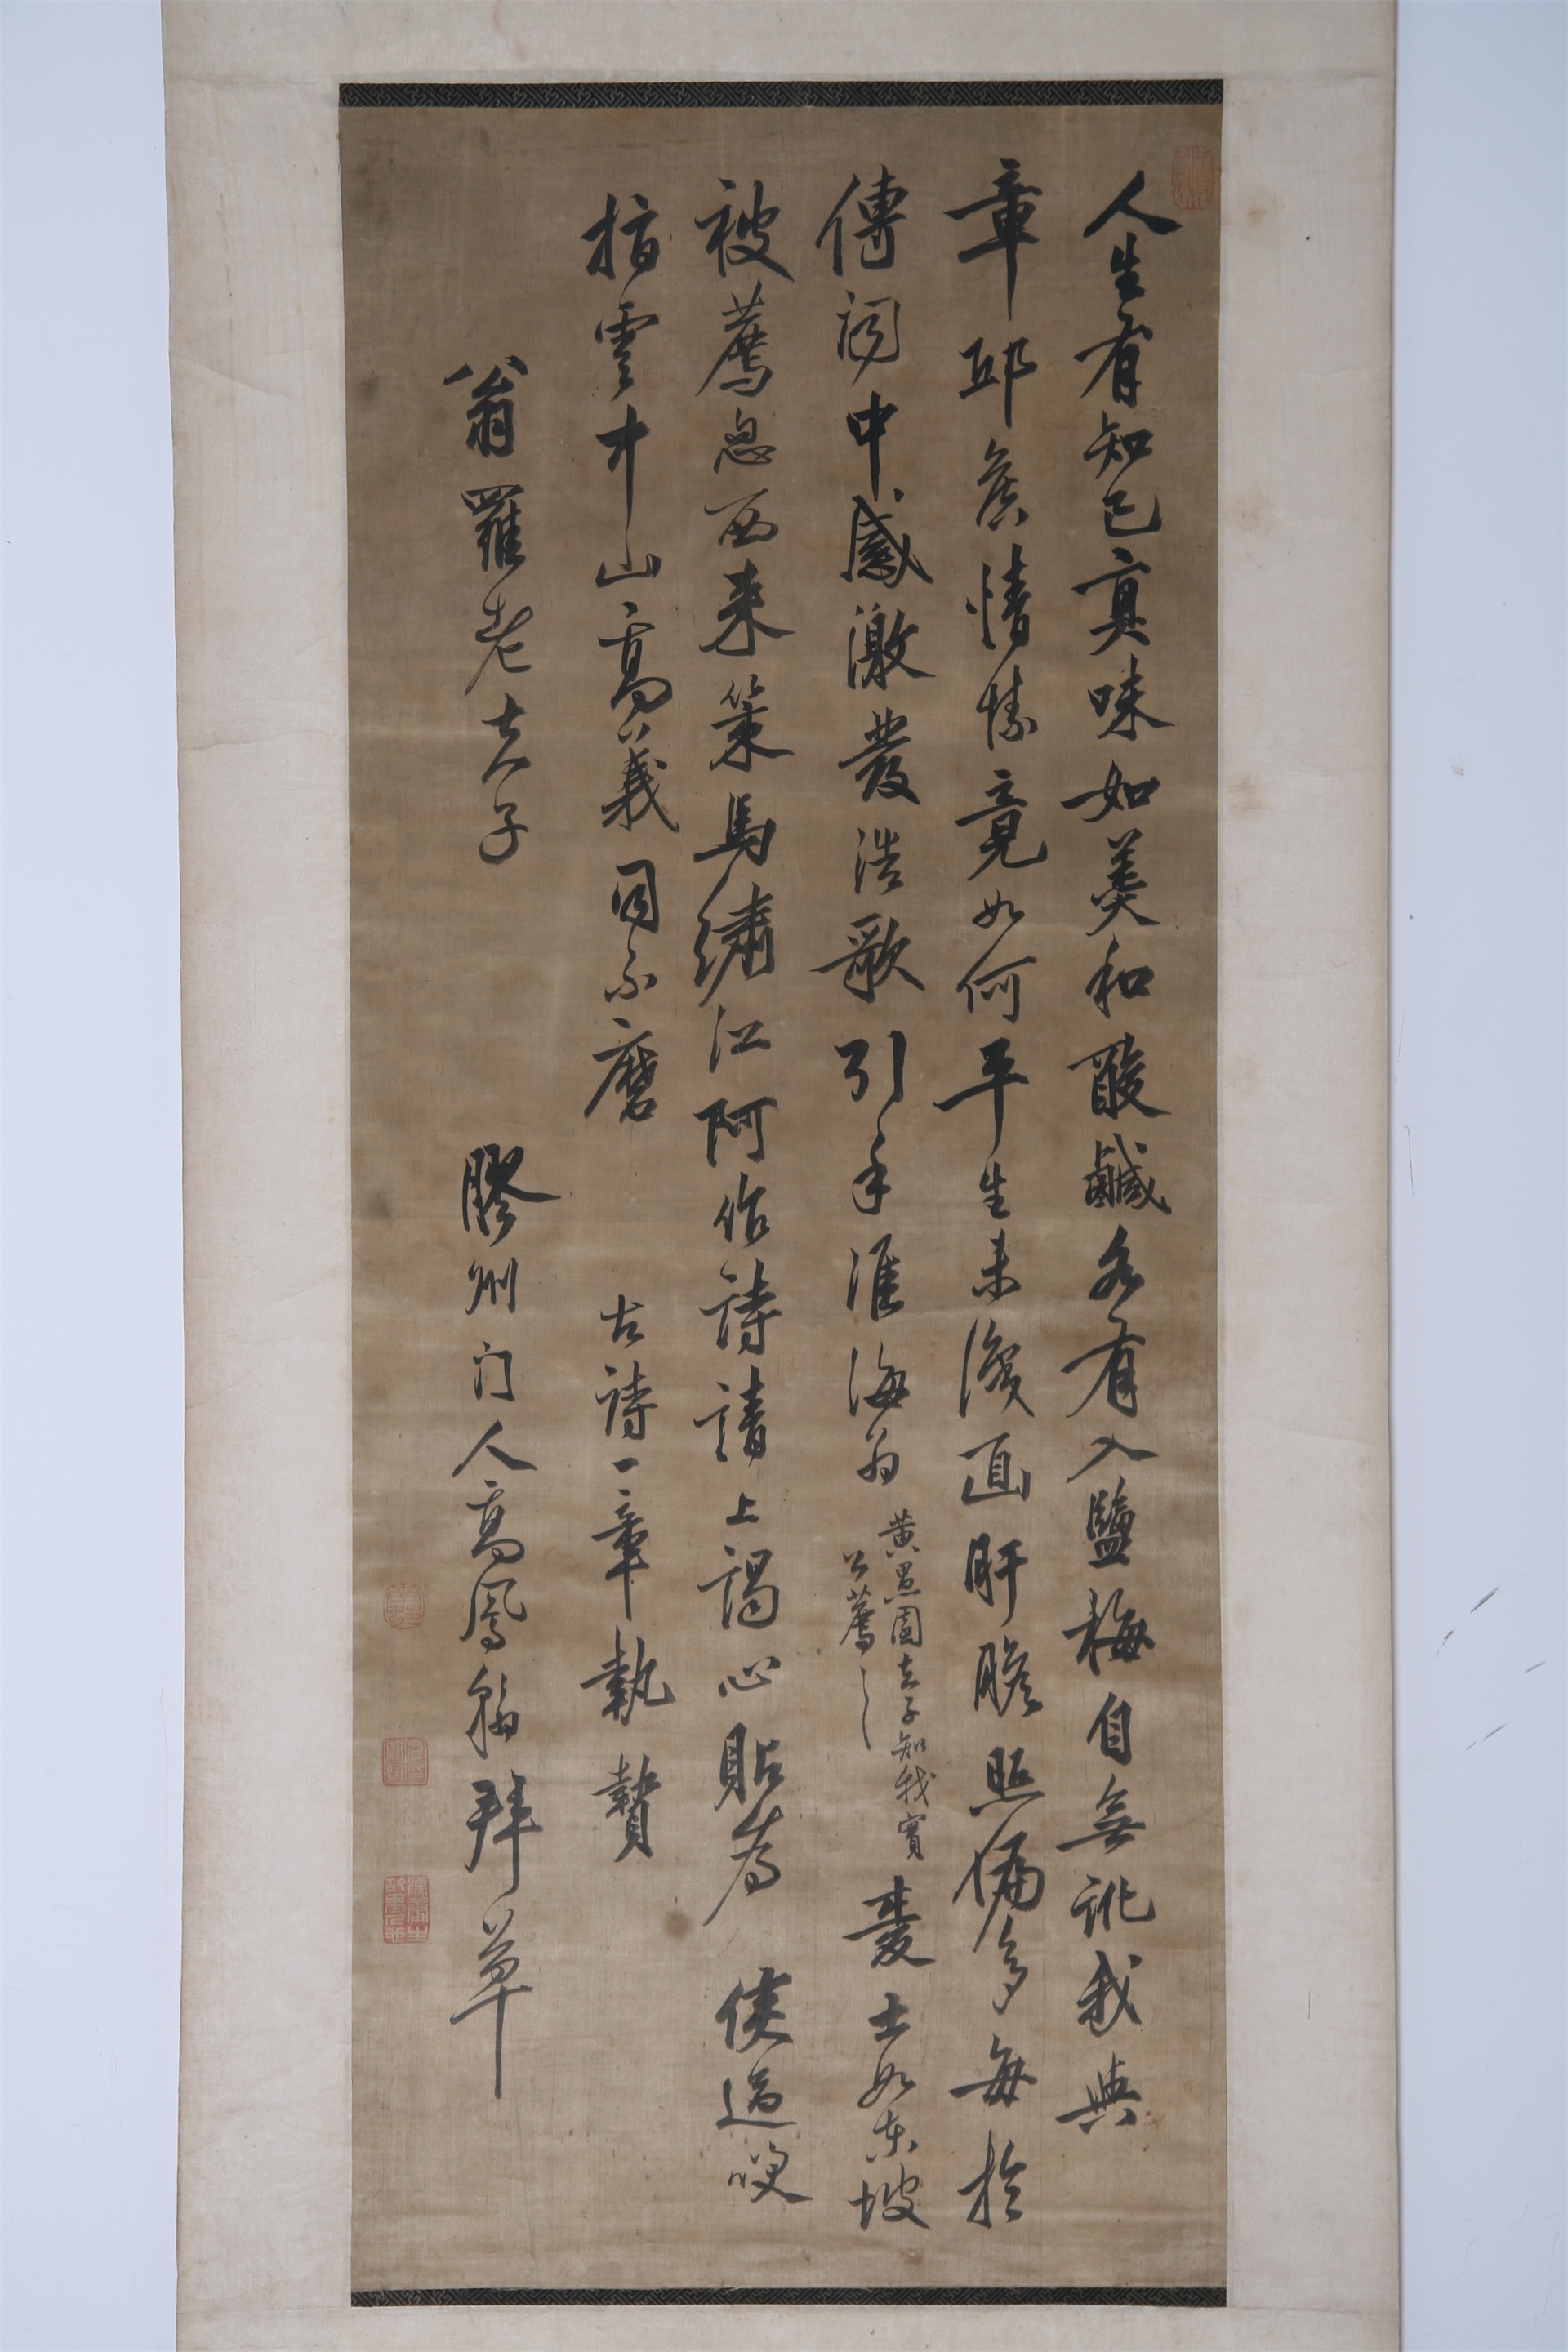 人生有知己真味如羹和酸鹹各有入鹽梅自無訛我與
章邱侯情愫竟如何平生未渡面肝膽照偏多每於
傳聞中感激發浩歌引手淮海翁
黃愚園夫子知我實
公薦之
憂士如東坡
被薦忽西來策馬繡江阿作詩請上謁心貼為侯過嗄
指雲中山高義同不磨
古詩一章執贄
翁羅老夫子
膠州門人高鳳翰拜草